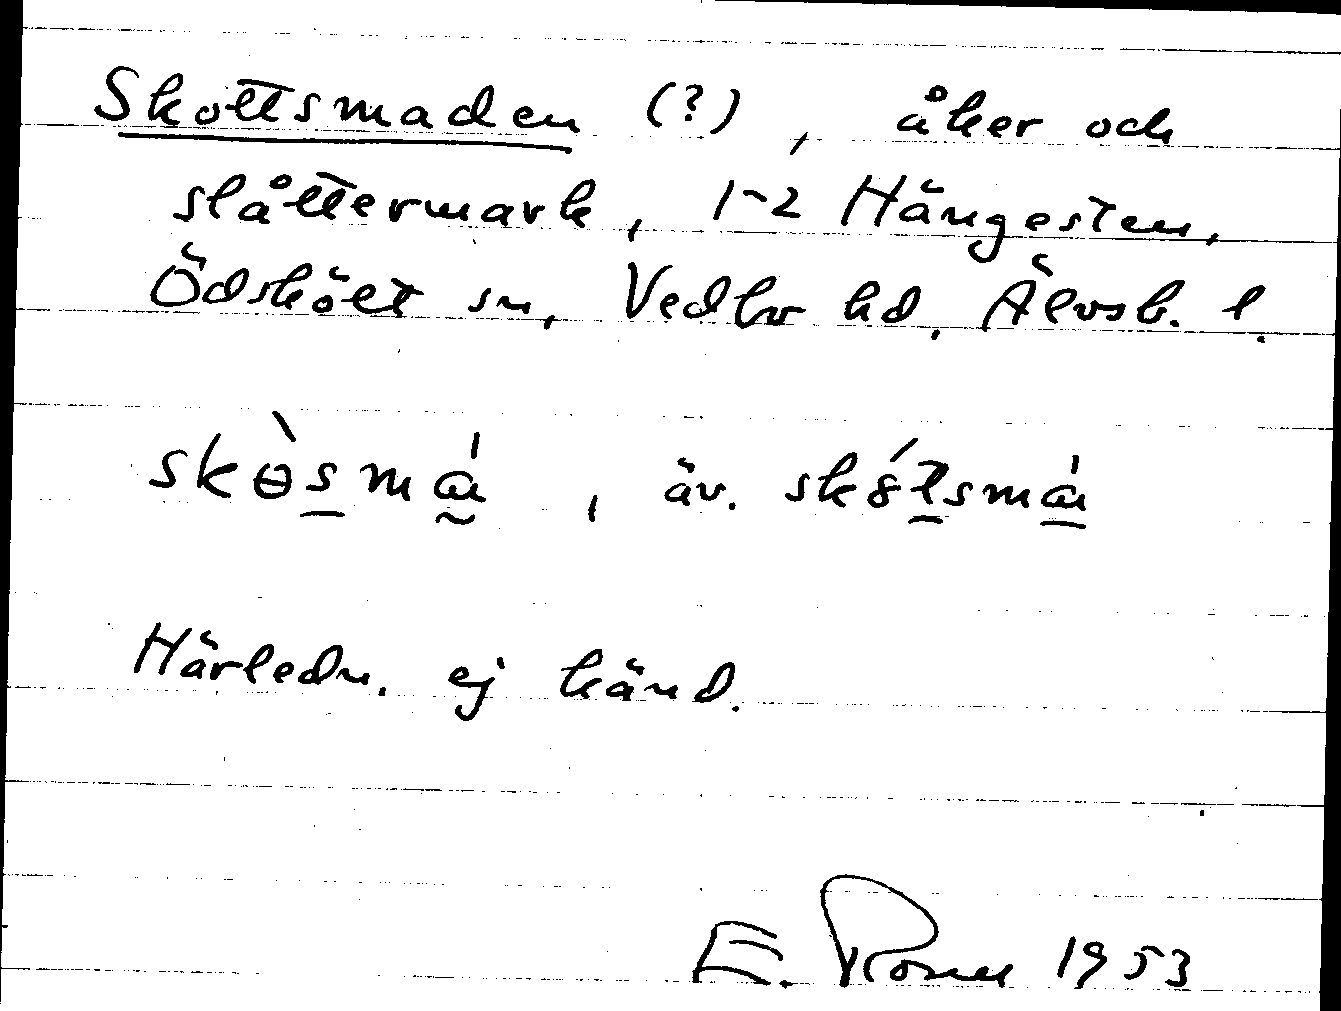 Skottsmaden (?), åker och
slåttermark, 1-2 Hängesten,
Ödskölt sn, Vedbo hd. Älvsb. l.
skὸsmá, äv. sk8́tsmá
Härledn. ej känd.
E. 1953